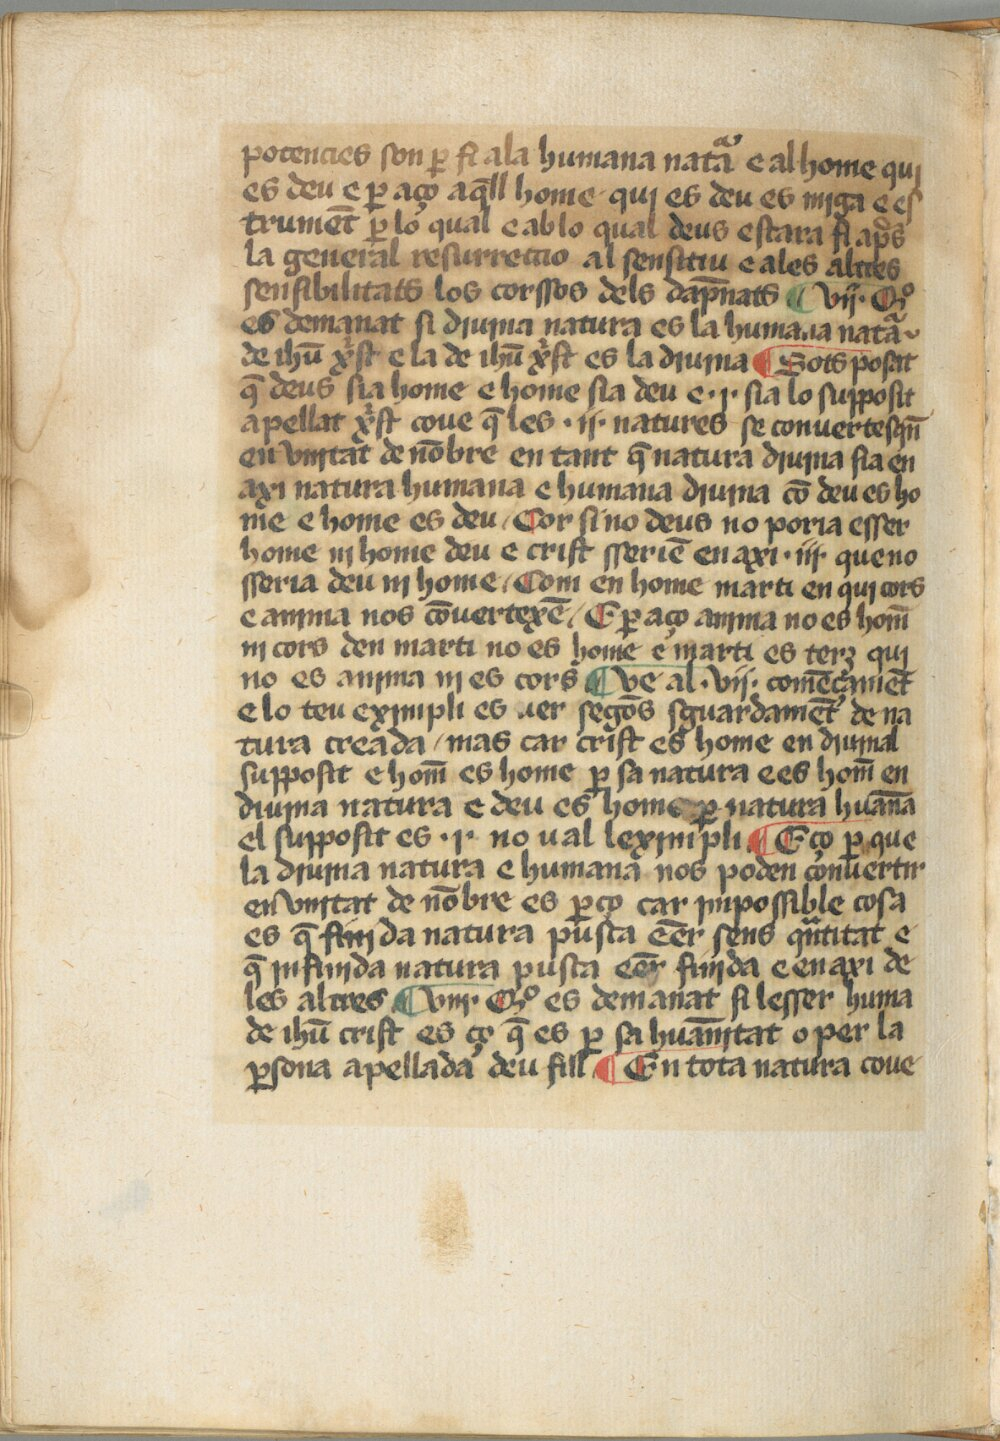 potencies son ꝑ si ala humana natᵃ e al home qui
es deu e ꝑ aço aq̃ll home qui es deu es miga e es
trumẽt ꝑ lo qual e ab lo qual deus estara si ap̃s
la general resurreccio al sensitiu e ales altres
sensibilitats los corssos dels dãpnats ¶ vij. Qº
es demanat si diuina natura es la humana natᵃ
de ihũ xp̃st e la de ihũ xp̃st es la diuina ¶ Sots posat
q̃ deus sia home e home sia deu e .i. sia lo supposit
apellat xp̃st coue q̃ les .ij. natures se conuertesqñ
en vnitat de nõbre en tant q̃ natura diuina sia en
axi natura humana e humana diuina cõ deu es ho
me e home es deu / Cor si no deus no poria esser
home ni home deu e crist sseriẽ en axi .iij. que no
sseria deu ni home / Com en home marti en qui cors
e anima nos cõuertexẽ / E ꝑ aço anima no es hom̃
ni cors den marti no es home e marti es terz qui
no es anima ni es cors ¶ Ve al .vij. comẽçamẽt
e lo teu eximpli es uer segõs sguardamẽt de na
tura creada / mas car crist es home en diuinal
supposit e hom̃ es home ꝑ sa natura e es hom̃ en
diuina natura e deu es home ꝑ natura huãna
el supposit es .i. no ual leximpli ¶ Eço ꝑ que
la diuina natura e humana nos poden conuertir
en vnitat de nõbre es ꝑço car impossible cosa
es q̃ finida natura pusca eẽr sens qᵃntitat e
q̃ infinida natura pusca eẽr finida e en axi de
les altres ¶ viij. Qº es demanat si lesser huma
de ihũ crist es ço q̃ es ꝑ sa huãnitat o per la
ꝑsona apellada deu fill ¶ En tota natura coue